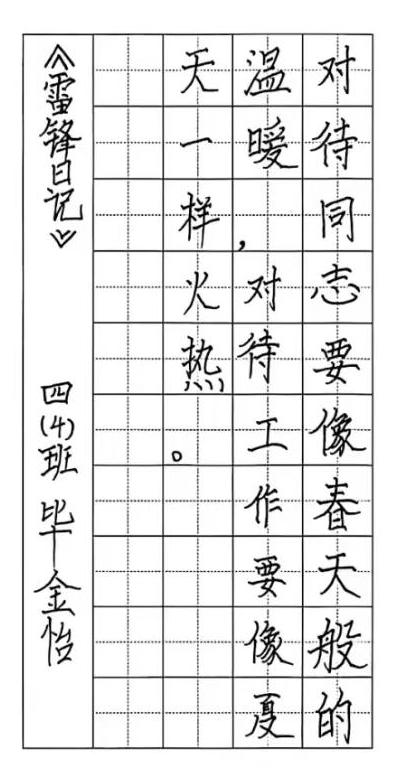 对待同志要像春天般的
温暖，对待工作要像夏
天一样火热。
《雷锋日记》 四(4)班 毕金怡